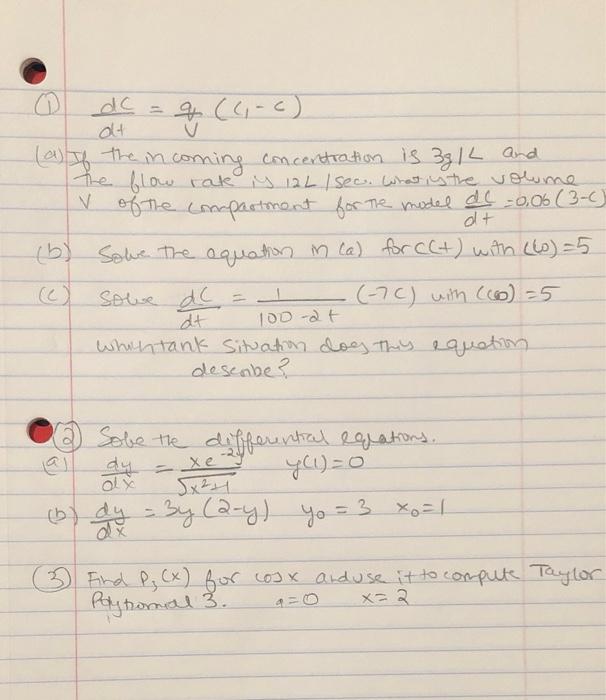 ① dC/dt = q/V (C₁ - C)
(a) If the incoming concentration is 3g/L and
the flow rate is 12L/sec. What is the volume
V of the compartment for the model dC/dt = 0,06(3-C)
(b) Solve the equation in (a) for C(t) with C(0) = 5
(c) Solve dC/dt = 1/(100-2t) (-7C) with C(0) = 5
Which tank situation does this equation
describe?
② Solve the differential equations.
(a) dy/dx = xe^(-2y)/√(x²+1) y(1) = 0
(b) dy/dx = 3y(2-y) y₀ = 3 x₀ = 1
③ Find P₃(x) for cosx and use it to compute Taylor
Polynomial 3. a = 0 x = 2